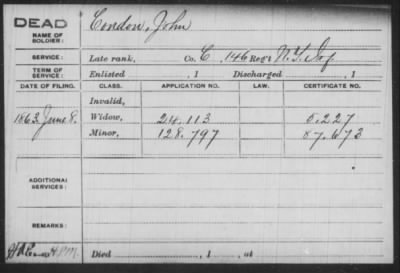 DEAD
NAME OF SOLDIER: Condon, John
SERVICE: Late rank, Co. C, 146 Reg't N.Y. Inf
TERM OF SERVICE: Enlisted , 1 Discharged , 1
DATE OF FILING. CLASS. APPLICATION NO. LAW. CERTIFICATE NO.
Invalid,
1863 June 8. Widow, 24.113 5.227
Minor, 128.797 87.673
ADDITIONAL SERVICES:
REMARKS:
Died , 1 , at